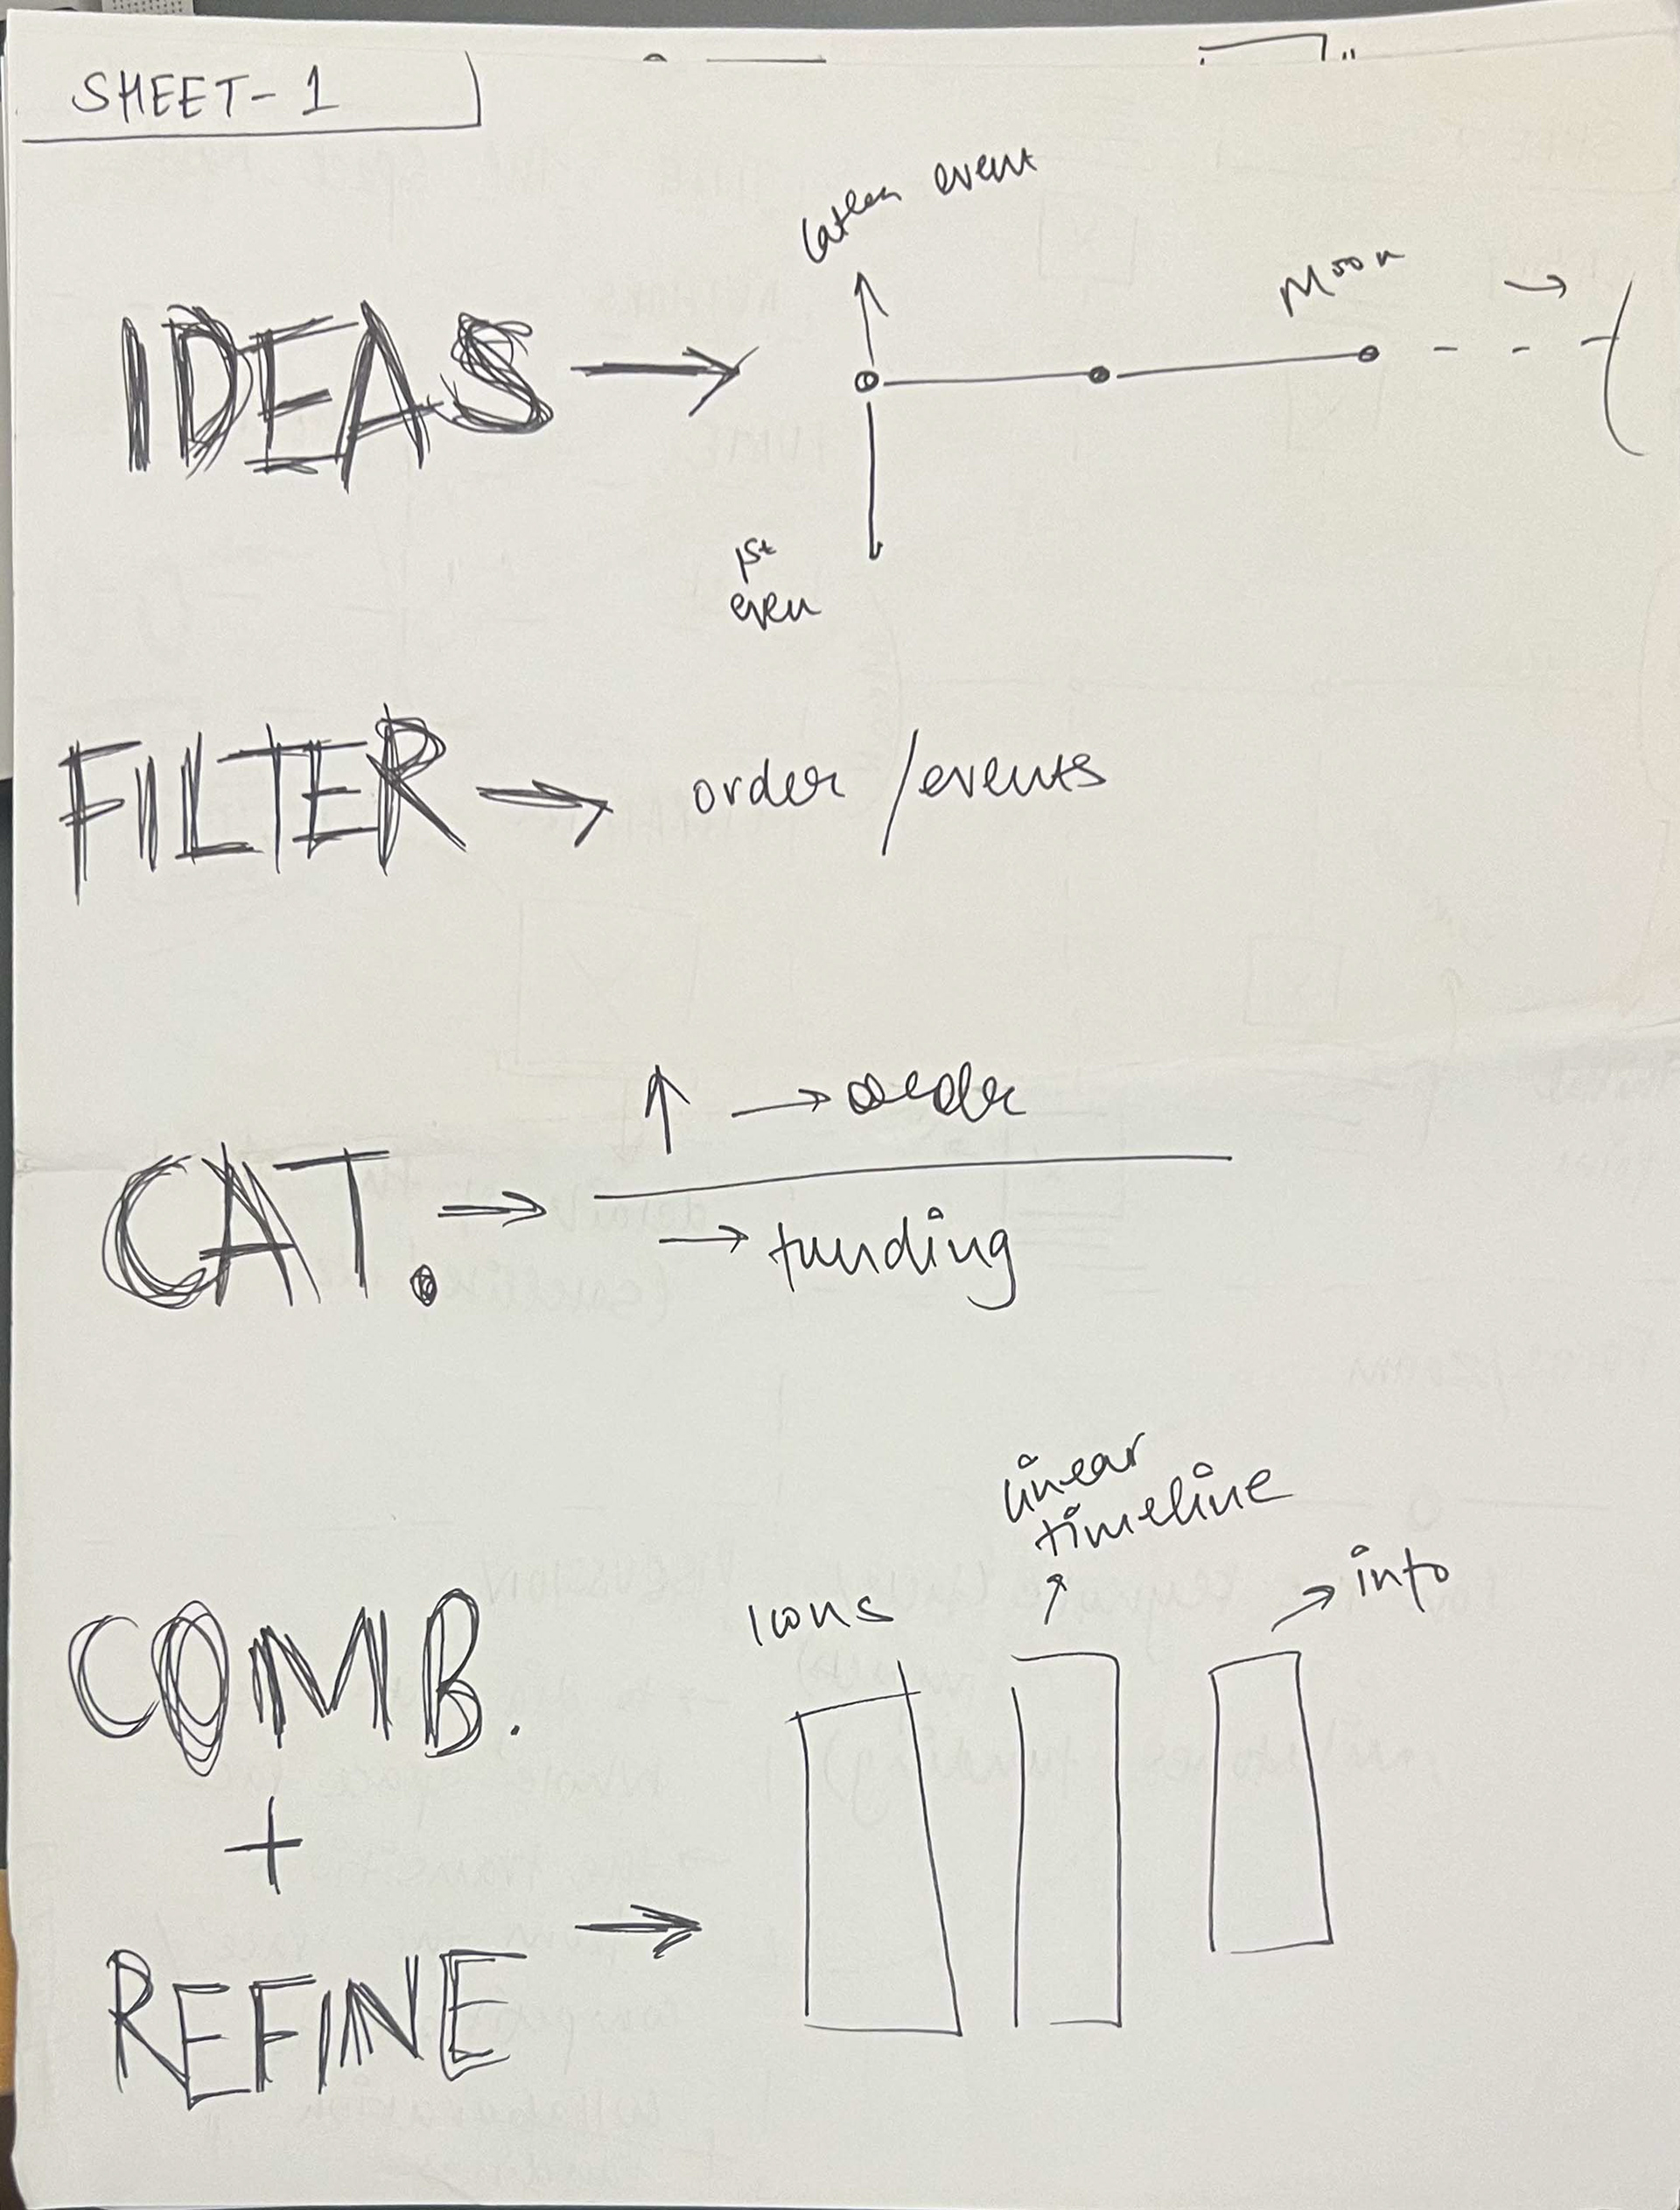 SHEET-1
later event
Moon
IDEAS
1st
even
FILTER → order /events
↑ → order
CAT. →
→ funding
linear
timeline
→ info
Icons
COMB.
+
REFINE →